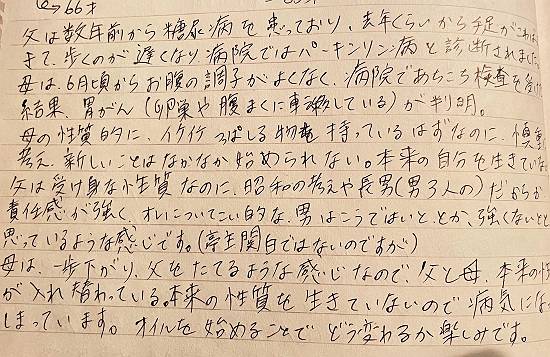 ↳66才
父は数年前から糖尿病を患っており、去年くらいから手足がこわば
きて、歩くのが遅くなり病院ではパーキンソン病と診断されました
母は、6月頃からお腹の調子がよくなく、病院であちこち検査を受け
結果、胃がん(卵巣や腹まくに転移している)が判明。
母の性質的に、イケイケ っぱしる物を持っているはずなのに、慎重
考え、新しいことはなかなか始められない。本来の自分を生きていな
父は受け身な性質なのに、昭和の考えや長男(男3人の)だからか
責任感が強く、オレについてこい的な、男はこうではいと、とか、強くないと
思っているような感じです。(亭主関白ではないのですが)
母は、一歩下がり、父をたてるような感じなので、父と母、本来の性
が入れ替わっている。本来の性質を生きていないので病気にな
しまっています。オイルを始めることでどう変わるか楽しみです。